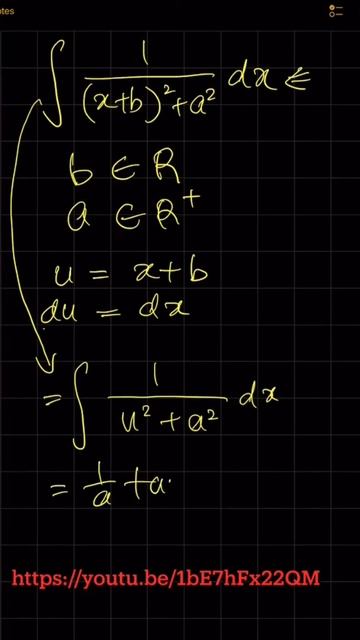 otes
∫ 1/((x+b)²+a²) dx ∈
b ∈ R
a ∈ R⁺
u = x+b
du = dx
= ∫ 1/(u²+a²) dx
= 1/a ta
https://youtu.be/1bE7hFx22QM